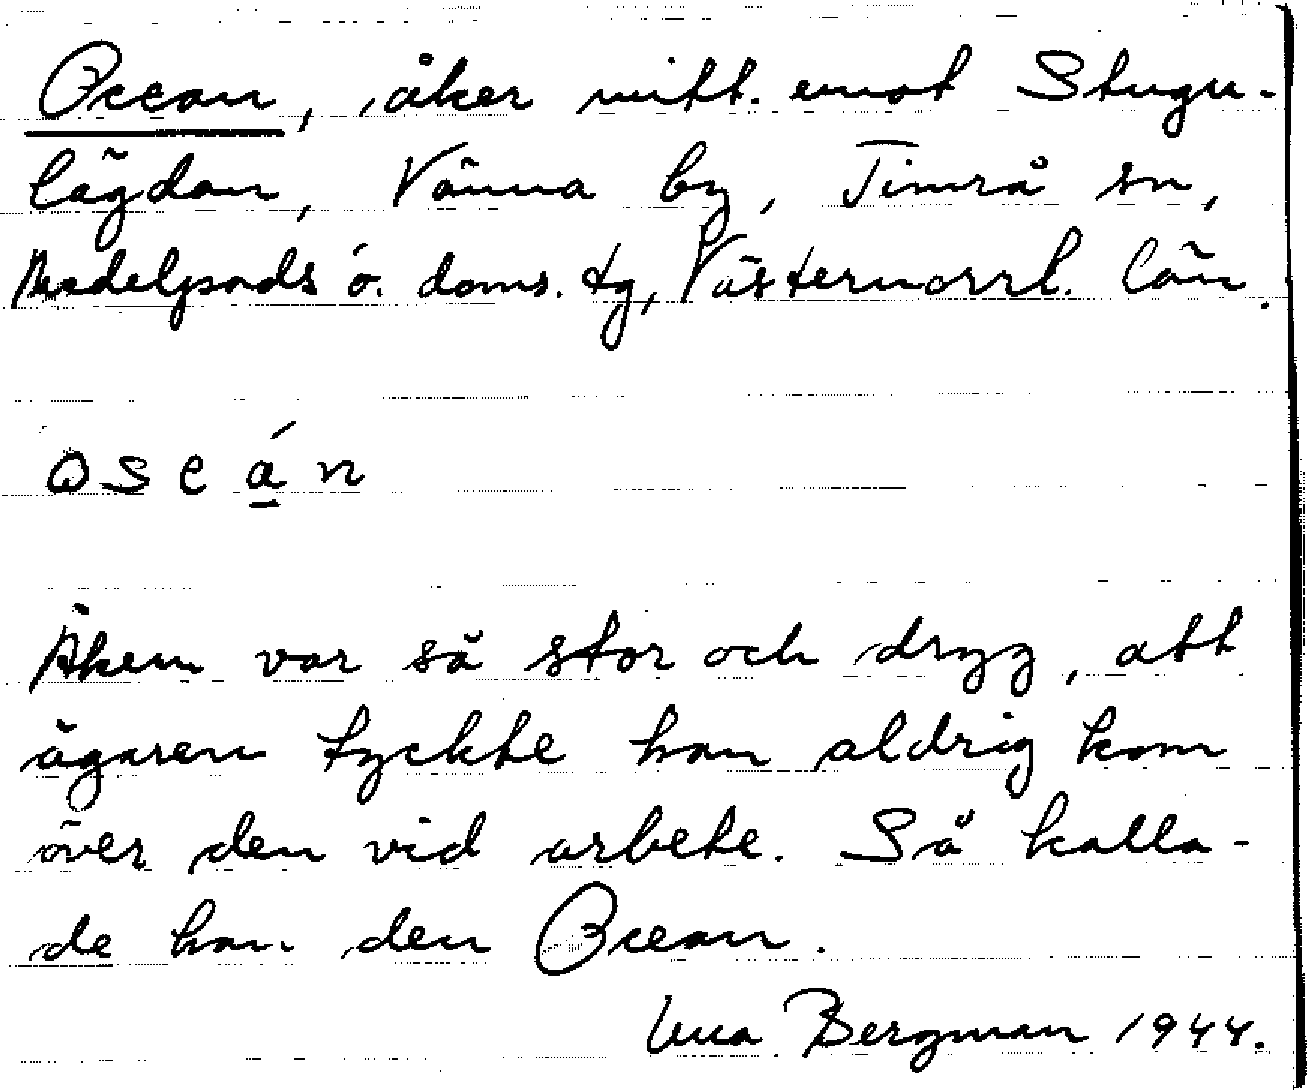 Ocean, åker mitt emot Stugu-
lägdan, Vänna by, Timrå sn,
Medelpads ö. doms. tg, Västernorrl. län.
oseán
Åkern var så stor och dryg, att
ägaren tyckte han aldrig kom
över den vid arbete. Så kalla-
de han den Ocean.
Una Bergman 1944.